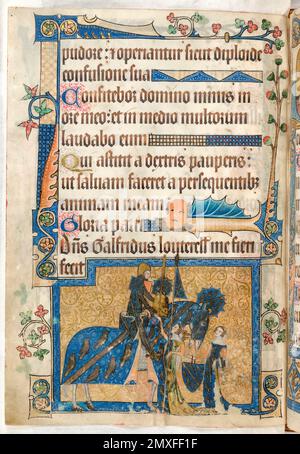 pudore: ⁊ operiantur sicut diploide
confusione sua
Confitebor domino nimis in
ore meo: et in medio multorum
laudabo eum
Qui astitit a dextris pauperis:
ut saluam faceret a persequentibz
animam meam
Gloria patri
Dñs Galfridus louterell me fieri
fecit
alamy
Image ID: 2MXFF1F
www.alamy.com